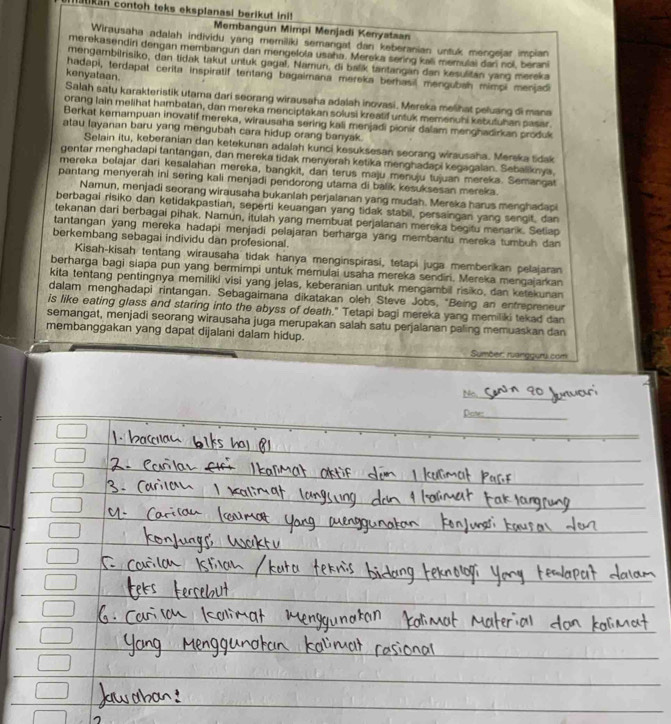 contoh teks eksplanasi berikut ini!
Membangun Mimpi Menjadi Kenyataan
Wirausaha adalah individu yang memiliki semangat dan keberanian untuk mengejar impian
merekasendiri dengan membangun dan mengelola usaha. Mereka sering kali memulai dari nol, berani
mengambilrisiko, dan tidak takut untuk gagal. Namun, di balik tantangan dan kesulitan yang mereka
hadapi, terdapat cerita inspiratif tentang bagaimana mereka berhasil mengubah mimpi menjadi
kenyataan.
Salah satu karakteristik utama dari seorang wirausaha adalah inovasi. Mereka melihat peluang di mana
orang lain melihat hambatan, dan mereka menciptakan solusi kreatif untuk memenuhi kebutuhan pasar.
Berkat kemampuan inovatif mereka, wirausaha sering kali menjadi pionir dalam menghadirkan produk
atau layanan baru yang mengubah cara hidup orang banyak.
Selain itu, keberanian dan ketekunan adalah kunci kesuksesan seorang wirausaha. Mereka tidak
gentar menghadapi tantangan, dan mereka tidak menyerah ketika menghadapi kegagalan. Sebaliknya,
mereka belajar dari kesalahan mereka, bangkit, dan terus maju menuju tujuan mereka. Semangat
pantang menyerah ini sering kali menjadi pendorong utama di balik kesuksesan mereka.
Namun, menjadi seorang wirausaha bukanlah perjalanan yang mudah. Mereka harus menghadapi
berbagai risiko dan ketidakpastian, seperti keuangan yang tidak stabil, persaingan yang sengit, dan
tekanan dari berbagai pihak. Namun, itulah yang membuat perjalanan mereka begitu menarik. Setiap
tantangan yang mereka hadapi menjadi pelajaran berharga yang membantu mereka tumbuh dan
berkembang sebagai individu dan profesional.
Kisah-kisah tentang wirausaha tidak hanya menginspirasi, tetapi juga memberikan pelajaran
berharga bagi siapa pun yang bermimpi untuk memulai usaha mereka sendiri. Mereka mengajarkan
kita tentang pentingnya memiliki visi yang jelas, keberanian untuk mengambil risiko, dan ketekunan
dalam menghadapi rintangan. Sebagaimana dikatakan oleh Steve Jobs, "Being an entrepreneur
is like eating glass and staring into the abyss of death." Tetapi bagi mereka yang memiliki tekad dan
semangat, menjadi seorang wirausaha juga merupakan salah satu perjalanan paling memuaskan dan
membanggakan yang dapat dijalani dalam hidup.
Sumber: ruangguru.com
No. Senin 20 Januari
Date:
1. bacalah teks hal 81
2. carilah 1 kalimat aktif dan 1 kalimat Pasif
3. Carilah 1 kalimat langsung dan 1 kalimat tak langsung
4. Carilah kalimat yang menggunakan konjungsi kausal dan
konjungsi waktu
5. carilah istilah / kata teknis bidang teknologi yang terdapat dalam
teks tersebut
6. Carilah kalimat menggunakan kalimat Material dan kalimat
yang Menggunakan kalimat rasional
Jawaban: